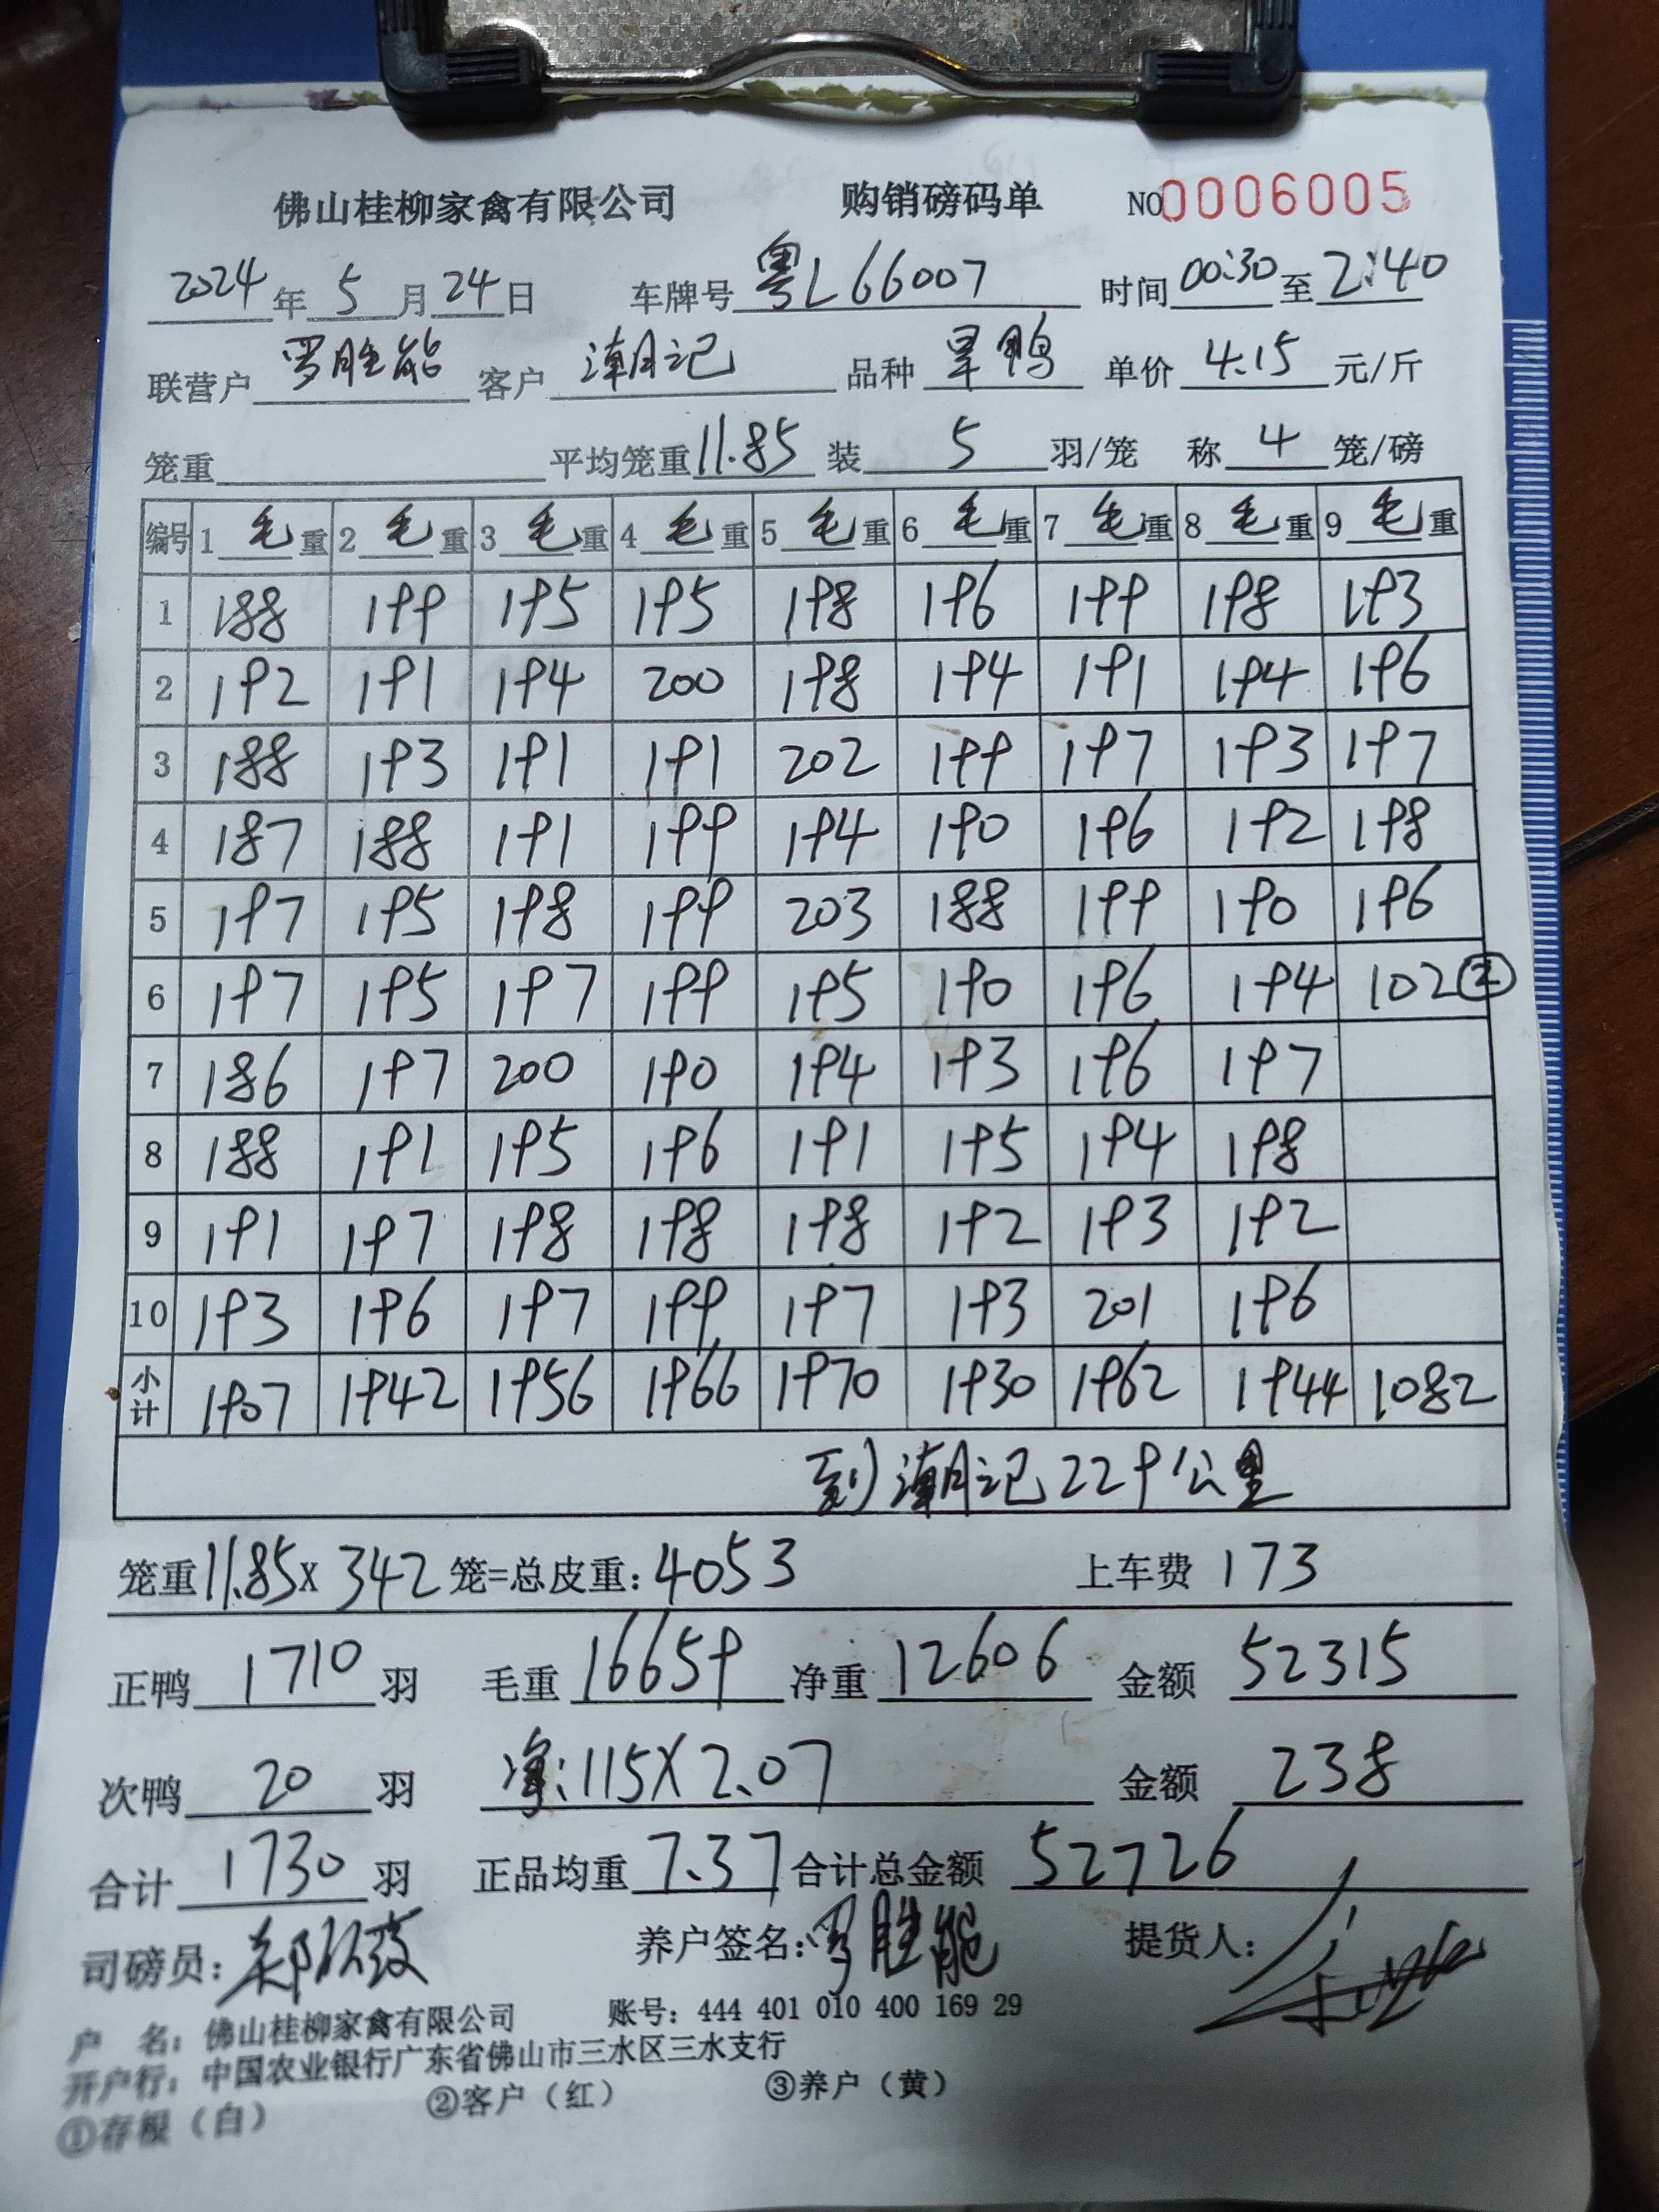 佛山桂柳家禽有限公司 购销磅码单 NO0006005
2024年5月24日 车牌号粤L66007 时间00:30至2:40
联营户罗胜能 客户潮记 品种旱鸭 单价4.15元/斤
笼重 平均笼重11.85 装5羽/笼 称4笼/磅
编号 1毛重 2毛重 3毛重 4毛重 5毛重 6毛重 7毛重 8毛重 9毛重
1 188 199 195 195 198 196 199 198 193
2 192 191 194 200 198 194 191 194 196
3 188 193 191 191 202 199 197 193 197
4 187 188 191 199 194 190 196 192 198
5 197 195 198 199 203 188 199 190 196
6 197 195 197 199 195 190 196 194 102②
7 186 197 200 190 194 193 196 197
8 188 191 195 196 191 195 194 198
9 191 197 198 198 198 192 193 192
10 193 196 197 199 197 193 201 196
小计 1907 1942 1956 1966 1970 1930 1962 1944 1082
到潮记229公里
笼重11.85x342笼=总皮重:4053 上车费173
正鸭1710羽 毛重16659 净重12606 金额52315
次鸭20羽 净:115X2.07 金额238
合计1730羽 正品均重7.37 合计总金额52726
司磅员: 养户签名:罗胜能 提货人:
户 名:佛山桂柳家禽有限公司 账号:444 401 010 400 169 29
开户行:中国农业银行广东省佛山市三水区三水支行
①存根(白) ②客户(红) ③养户(黄)